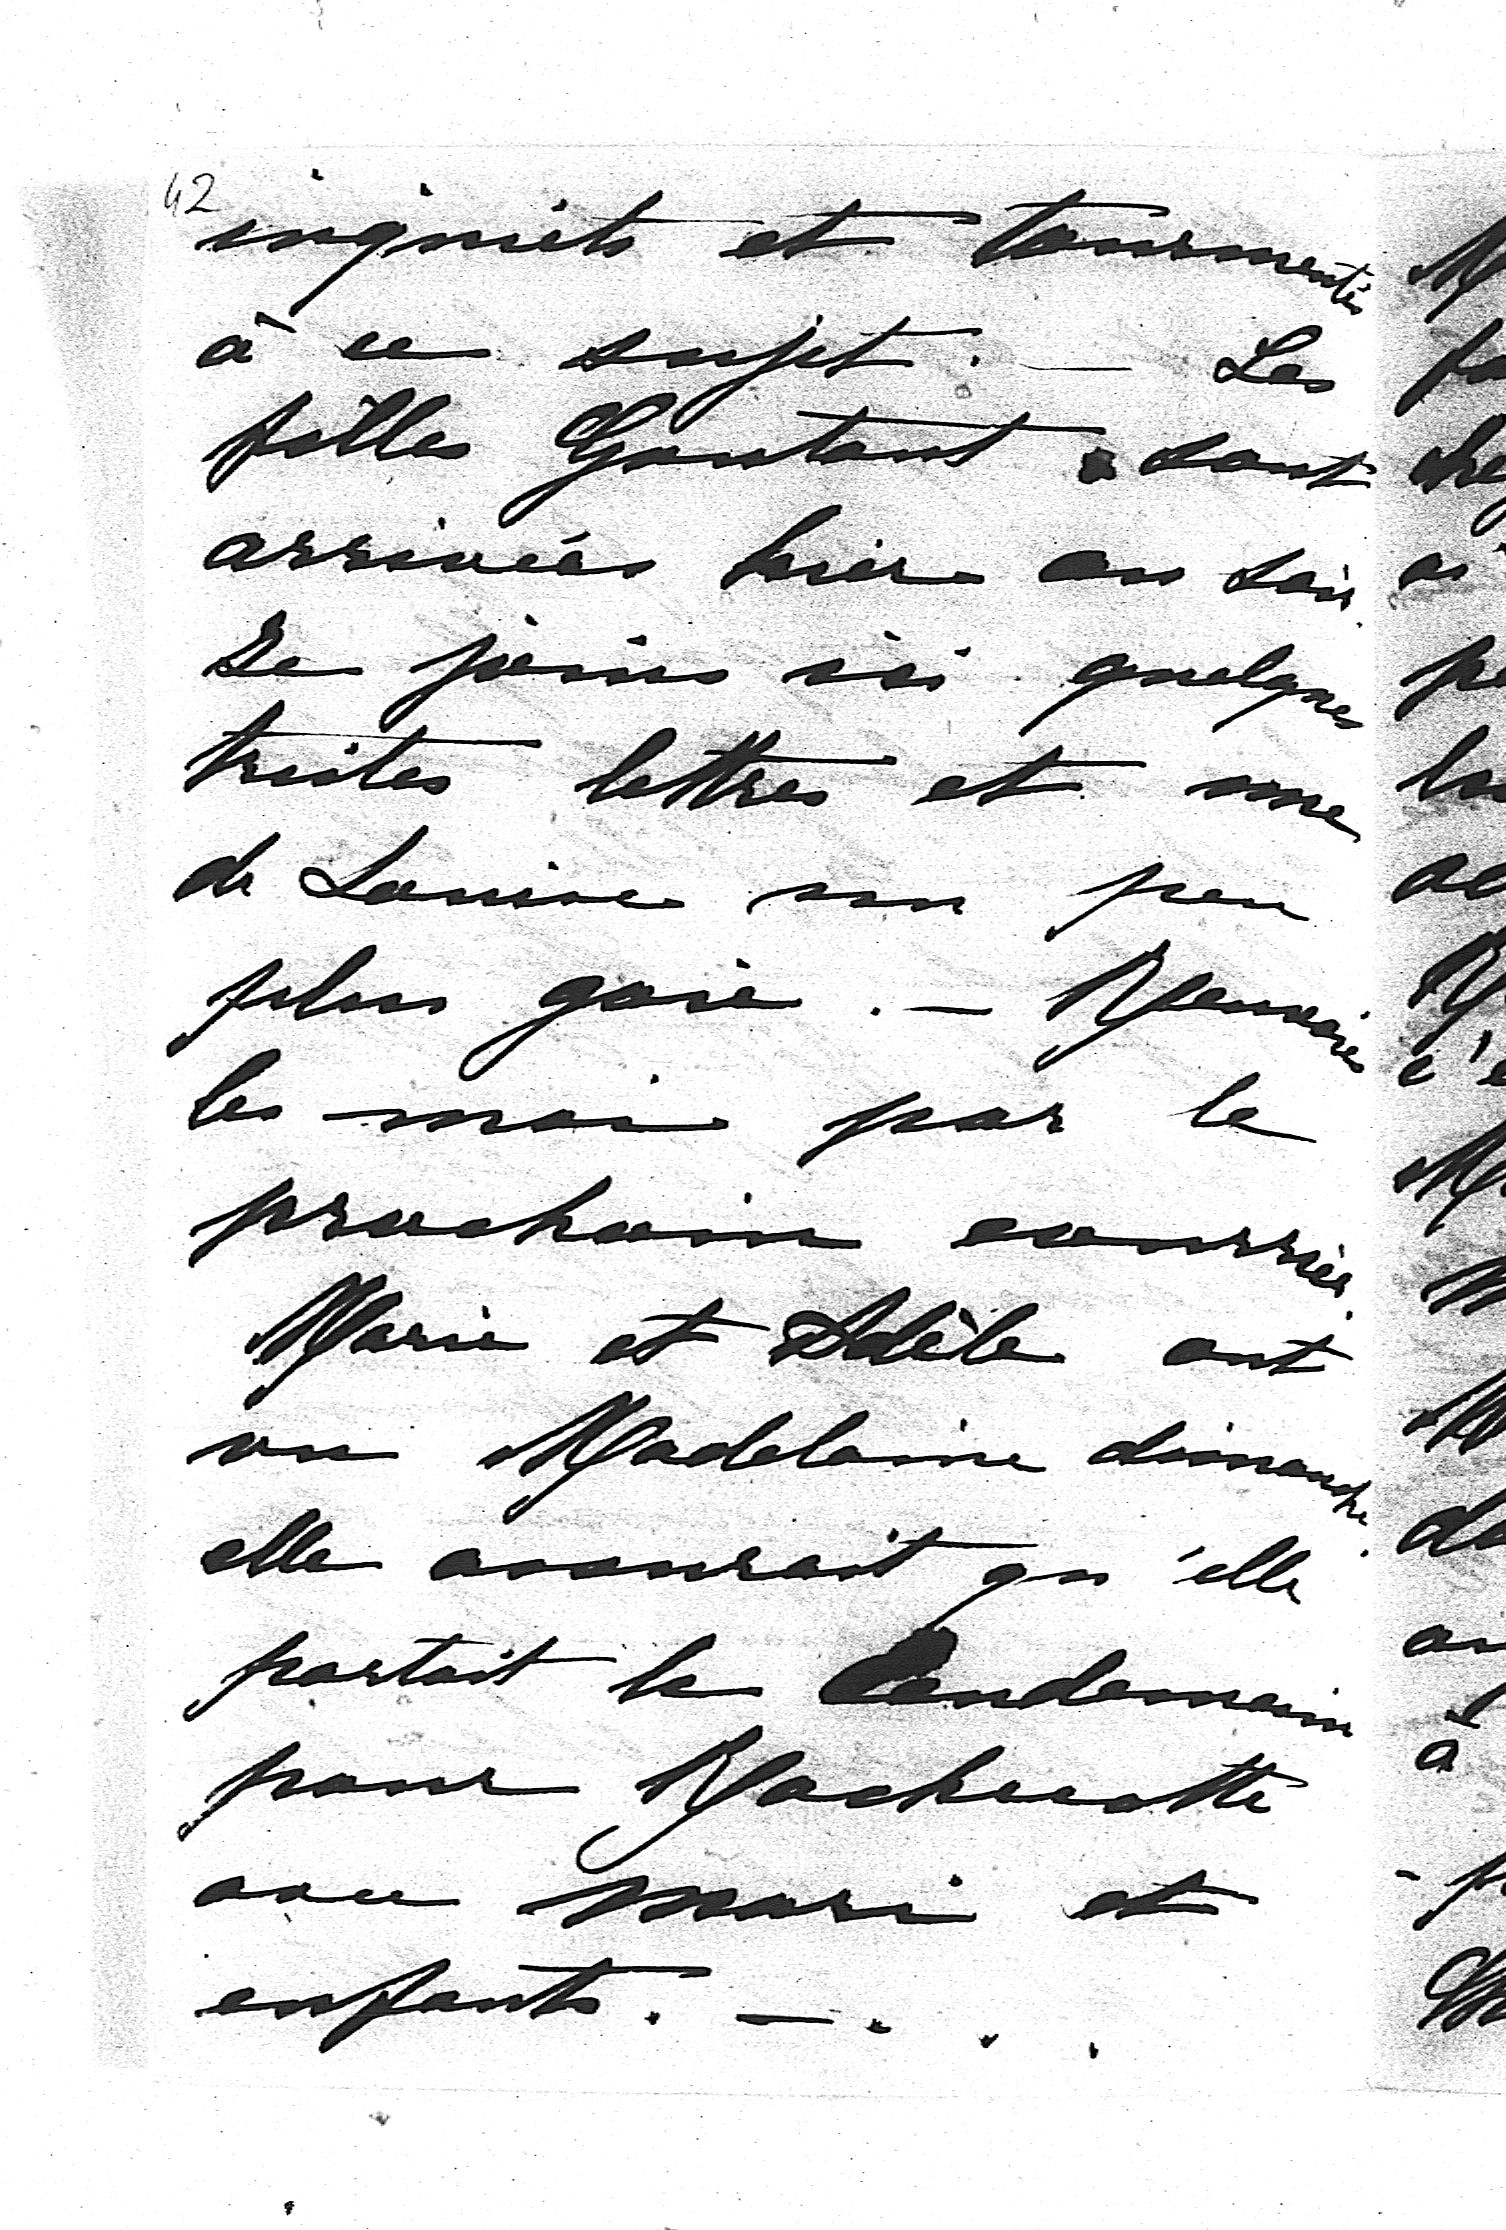 42
inquiets et tourmentés
à ce sujet. — Les
filles Goutant sont
arrivées hier au soir.
Je joins ici quelques
tristes lettres et une
de Louise un peu
plus gaie. — Renvoies
les moi par le
prochain courrier.
Marie et Adèle ont
vu Madelaine dimanche.
elle assurait qu'elle
partait le lendemain
pour Rochecotte
avec mari et
enfants. — . . .